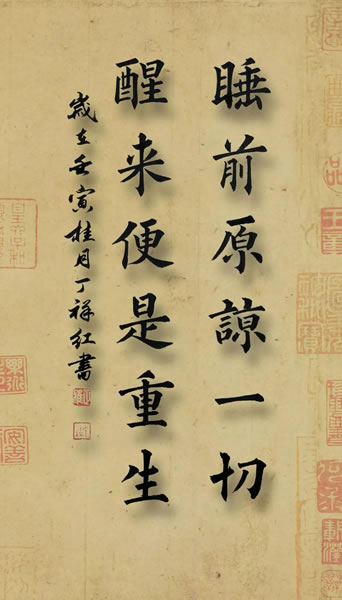 睡前原諒一切
醒来便是重生
歲在壬寅桂月丁祥红書